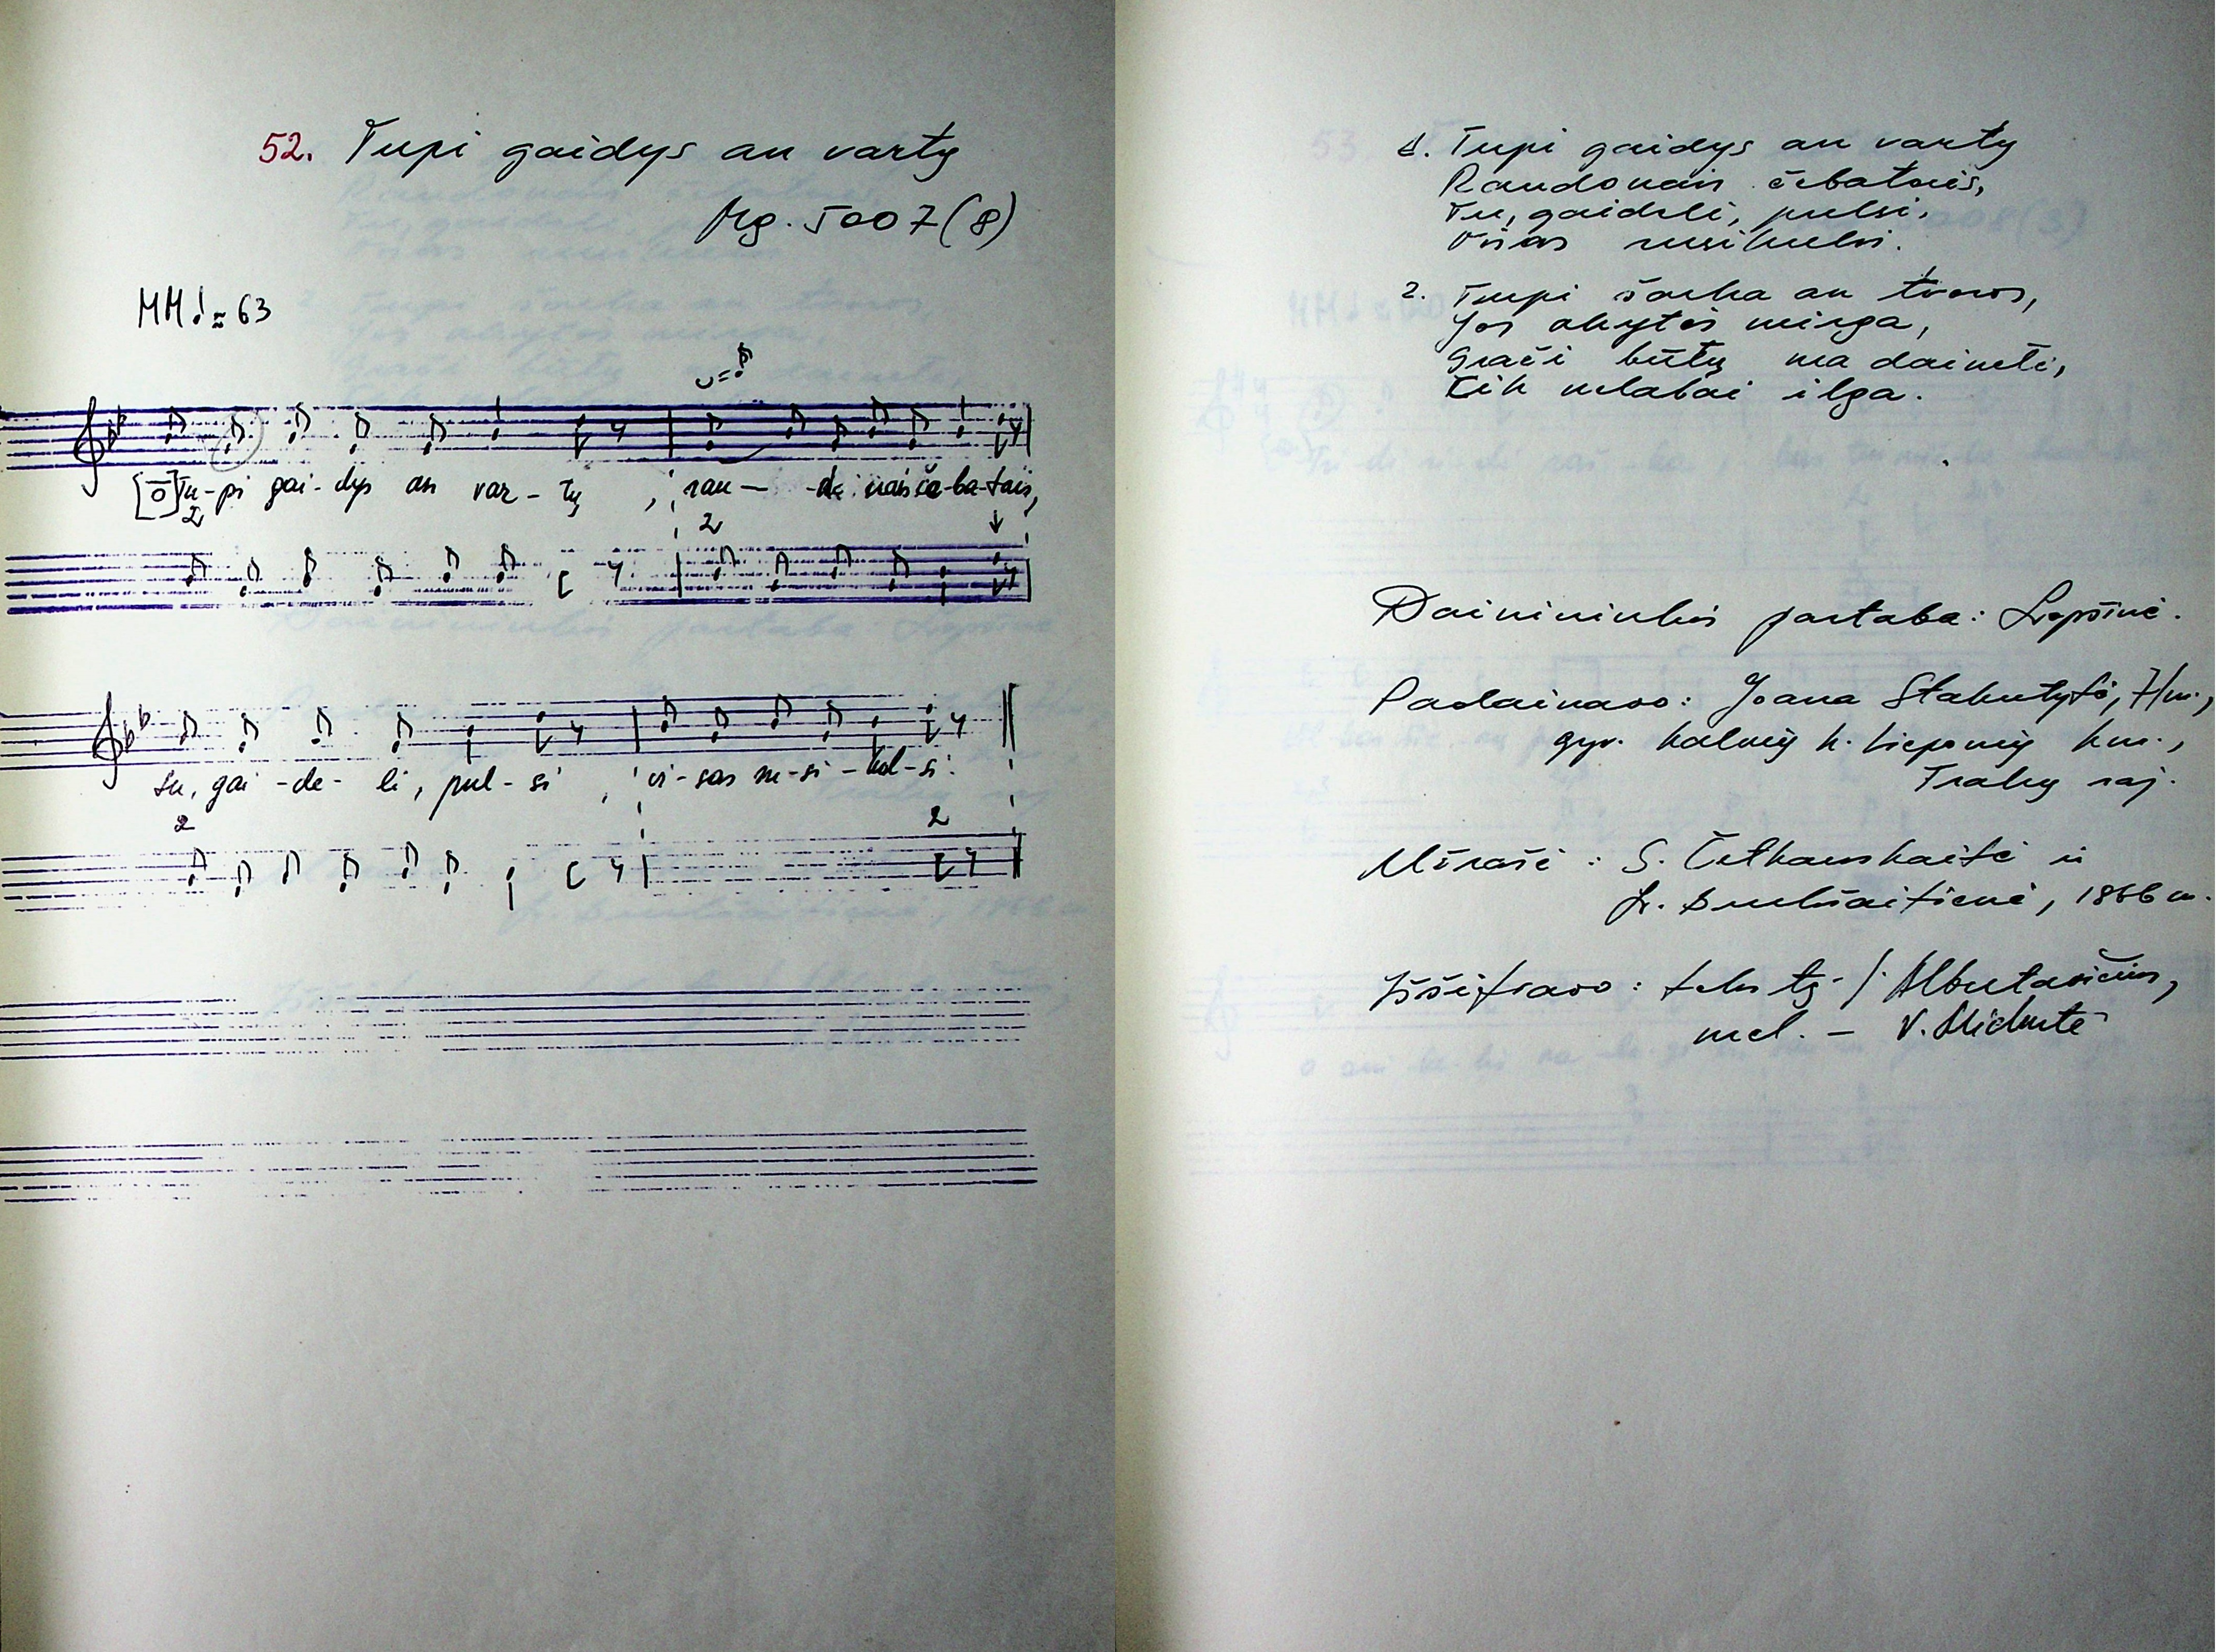 52. Tupi gaidys an vartų
Mg. 5007(8)
MM ♩ ≈ 63
[o] Tu-pi gai-dys an var-tų, rau- -do nais če-ba-tais,
2 2
tu, gai-de-li, pul-si, vi-sas su-si-kul-si.
2 2
1. Tupi gaidys an vartų
Raudonais čebatais,
Tu, gaideli, pulsi,
Visas susikulsi.
2. Tupi šarka an tvoros,
Jos akytės mirga,
Graži būtų ma dainelė,
Tik nelabai ilga.
Dainininkės pastaba:
Padainavo: Joana Stakutytė, 71 m.,
gyv. Kalnių k. Lieponių km.,
Trakų raj.
Užrašė: S. Četkauskaitė ir
1966 m.
Iššifravo: tekstą -
mel. –